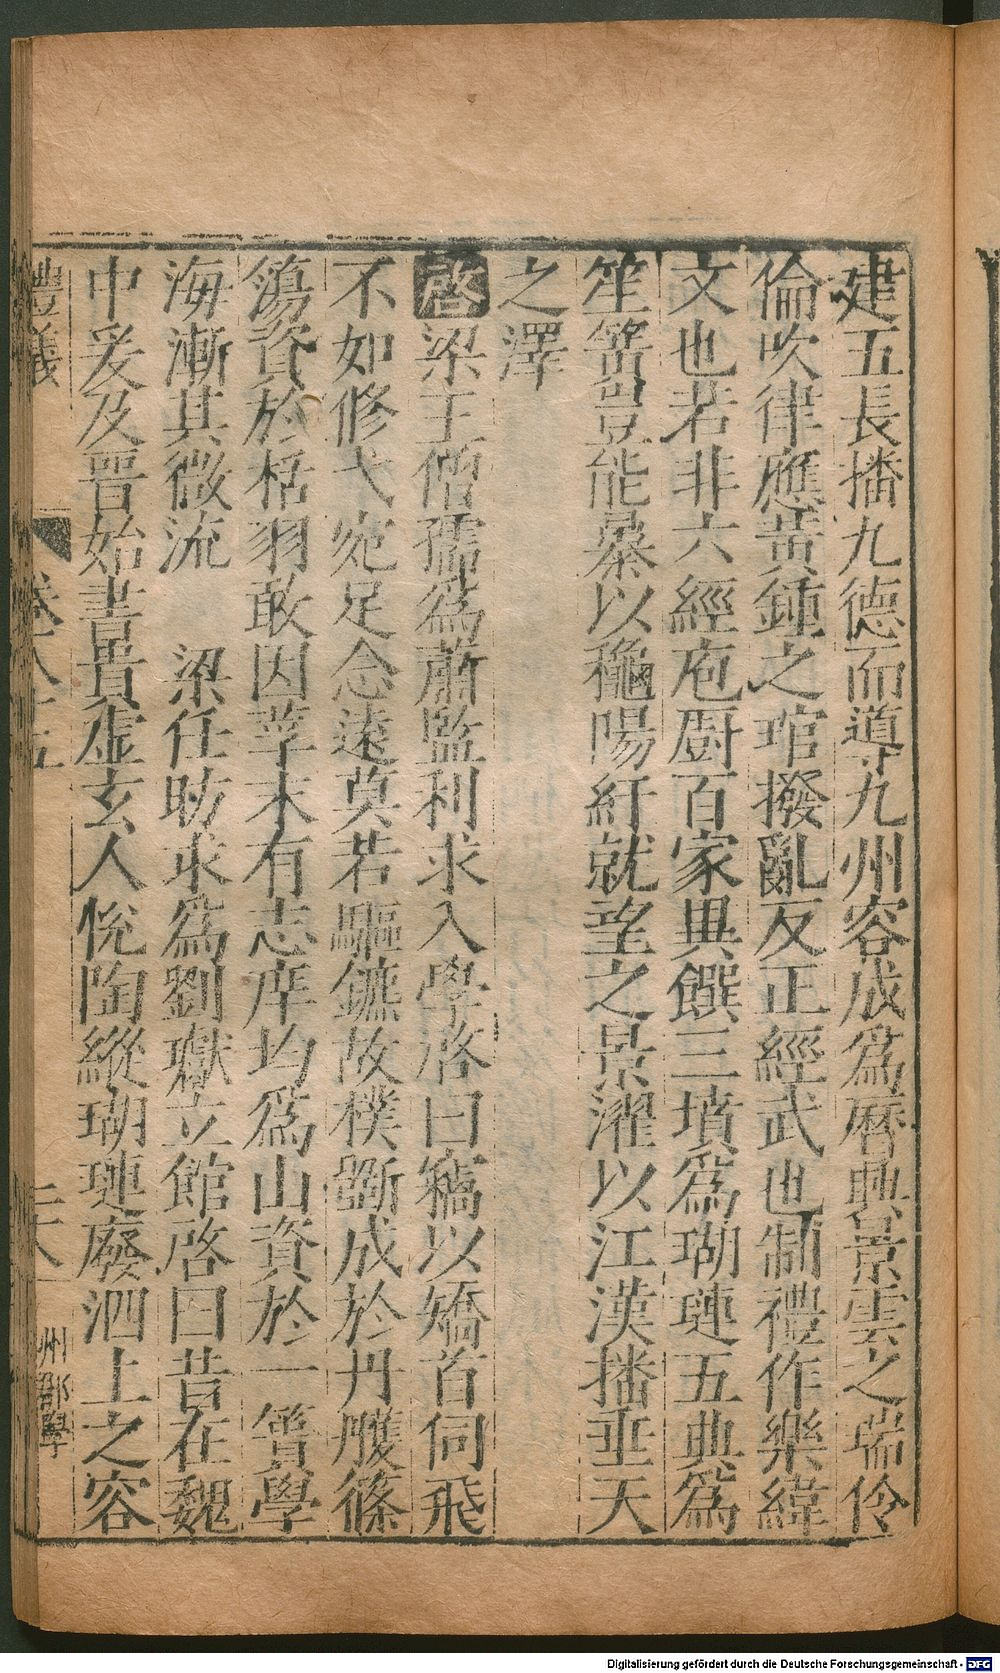 建五長播九德而導九州容成爲曆興景雲之瑞伶
倫吹律應黃鍾之琯撥亂反正經武也制禮作樂緯
文也若非六經庖厨百家異饌三墳爲瑚璉五典爲
笙簧豈能暴以穐陽紆就望之景濯以江漢播垂天
之澤
啓梁王僧孺爲蕭監利求入學啓曰竊以嬌首伺飛
不如修弋宛足念遠莫若驅鑣故樸斲成於丹雘篠
簜資於栝羽敢因莩末有志庠均爲山資於一簣學
海漸其微流　梁任昉求爲劉瓛立館啓曰昔在魏
中爰及晉始書貴虛玄人悅陶縱瑚璉廢泗上之容
豊義　卷三八十五　二十八　州郡學
Digitalisierung gefördert durch die Deutsche Forschungsgemeinschaft - DFG